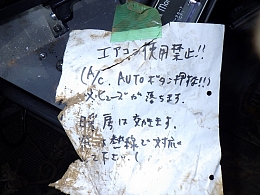 エアコン使用禁止!!
(A/C, AUTOボタン押すな!!)
ヒューズが落ちます。
暖房は効きます。
は熱線で対応
して下さい。